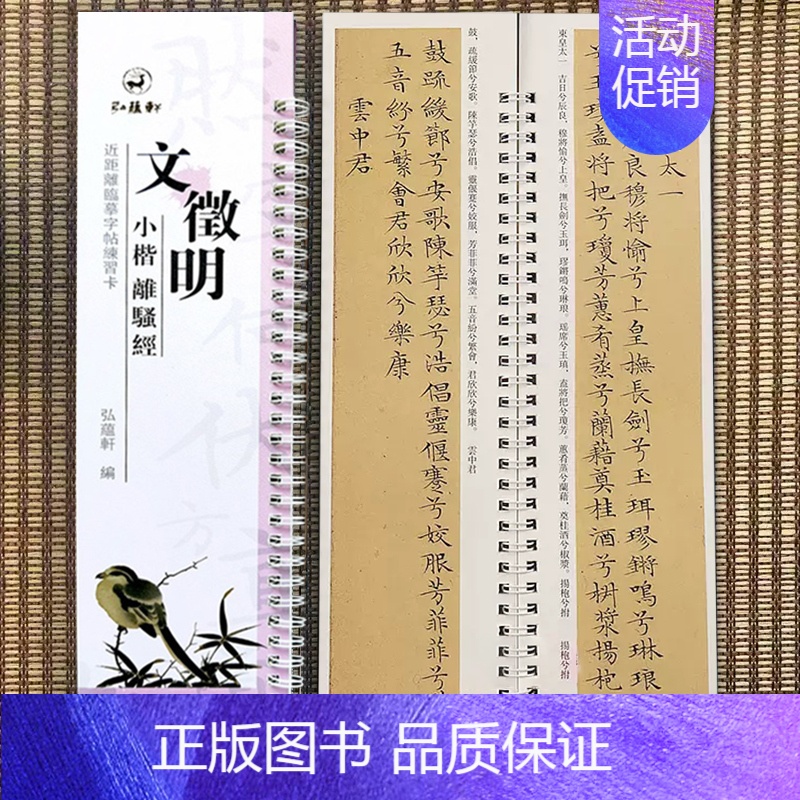 弘蕴軒
近距離臨摹字帖練習卡
文徵明
小楷離騷經
弘蘊軒 編
活动
促销
太一
良穆将愉兮上皇撫長劍兮玉珥璆鏘鳴兮琳琅
兮玉瑱盍将把兮瓊芳蕙肴蒸兮蘭藉奠桂酒兮椒漿揚枹
東皇太一 吉日兮辰良，穆將愉兮上皇。撫長劍兮玉珥，璆鏘鳴兮琳琅。瑶席兮玉瑱，盍將把兮瓊芳。蕙肴蒸兮蘭藉，奠桂酒兮椒漿。揚枹兮拊
揚枹兮拊
鼓，疏緩節兮安歌，陳竽瑟兮浩倡。靈偃蹇兮姣服，芳菲菲兮滿堂。五音紛兮繁會，君欣欣兮樂康。 雲中君
鼓疏緩節兮安歌陳竽瑟兮浩倡靈偃蹇兮姣服芳菲菲兮
五音紛兮繁會君欣欣兮樂康
雲中君
正版图书 品质保证